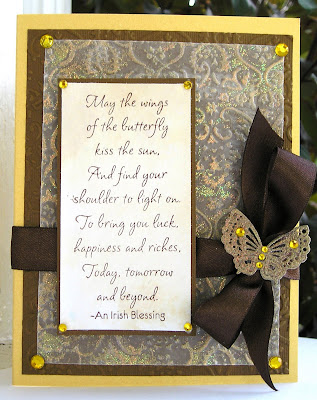 May the wings
of the butterfly
kiss the sun,
And find your
shoulder to light on.
To bring you luck,
happiness and riches,
Today, tomorrow
and beyond.
-An Irish Blessing